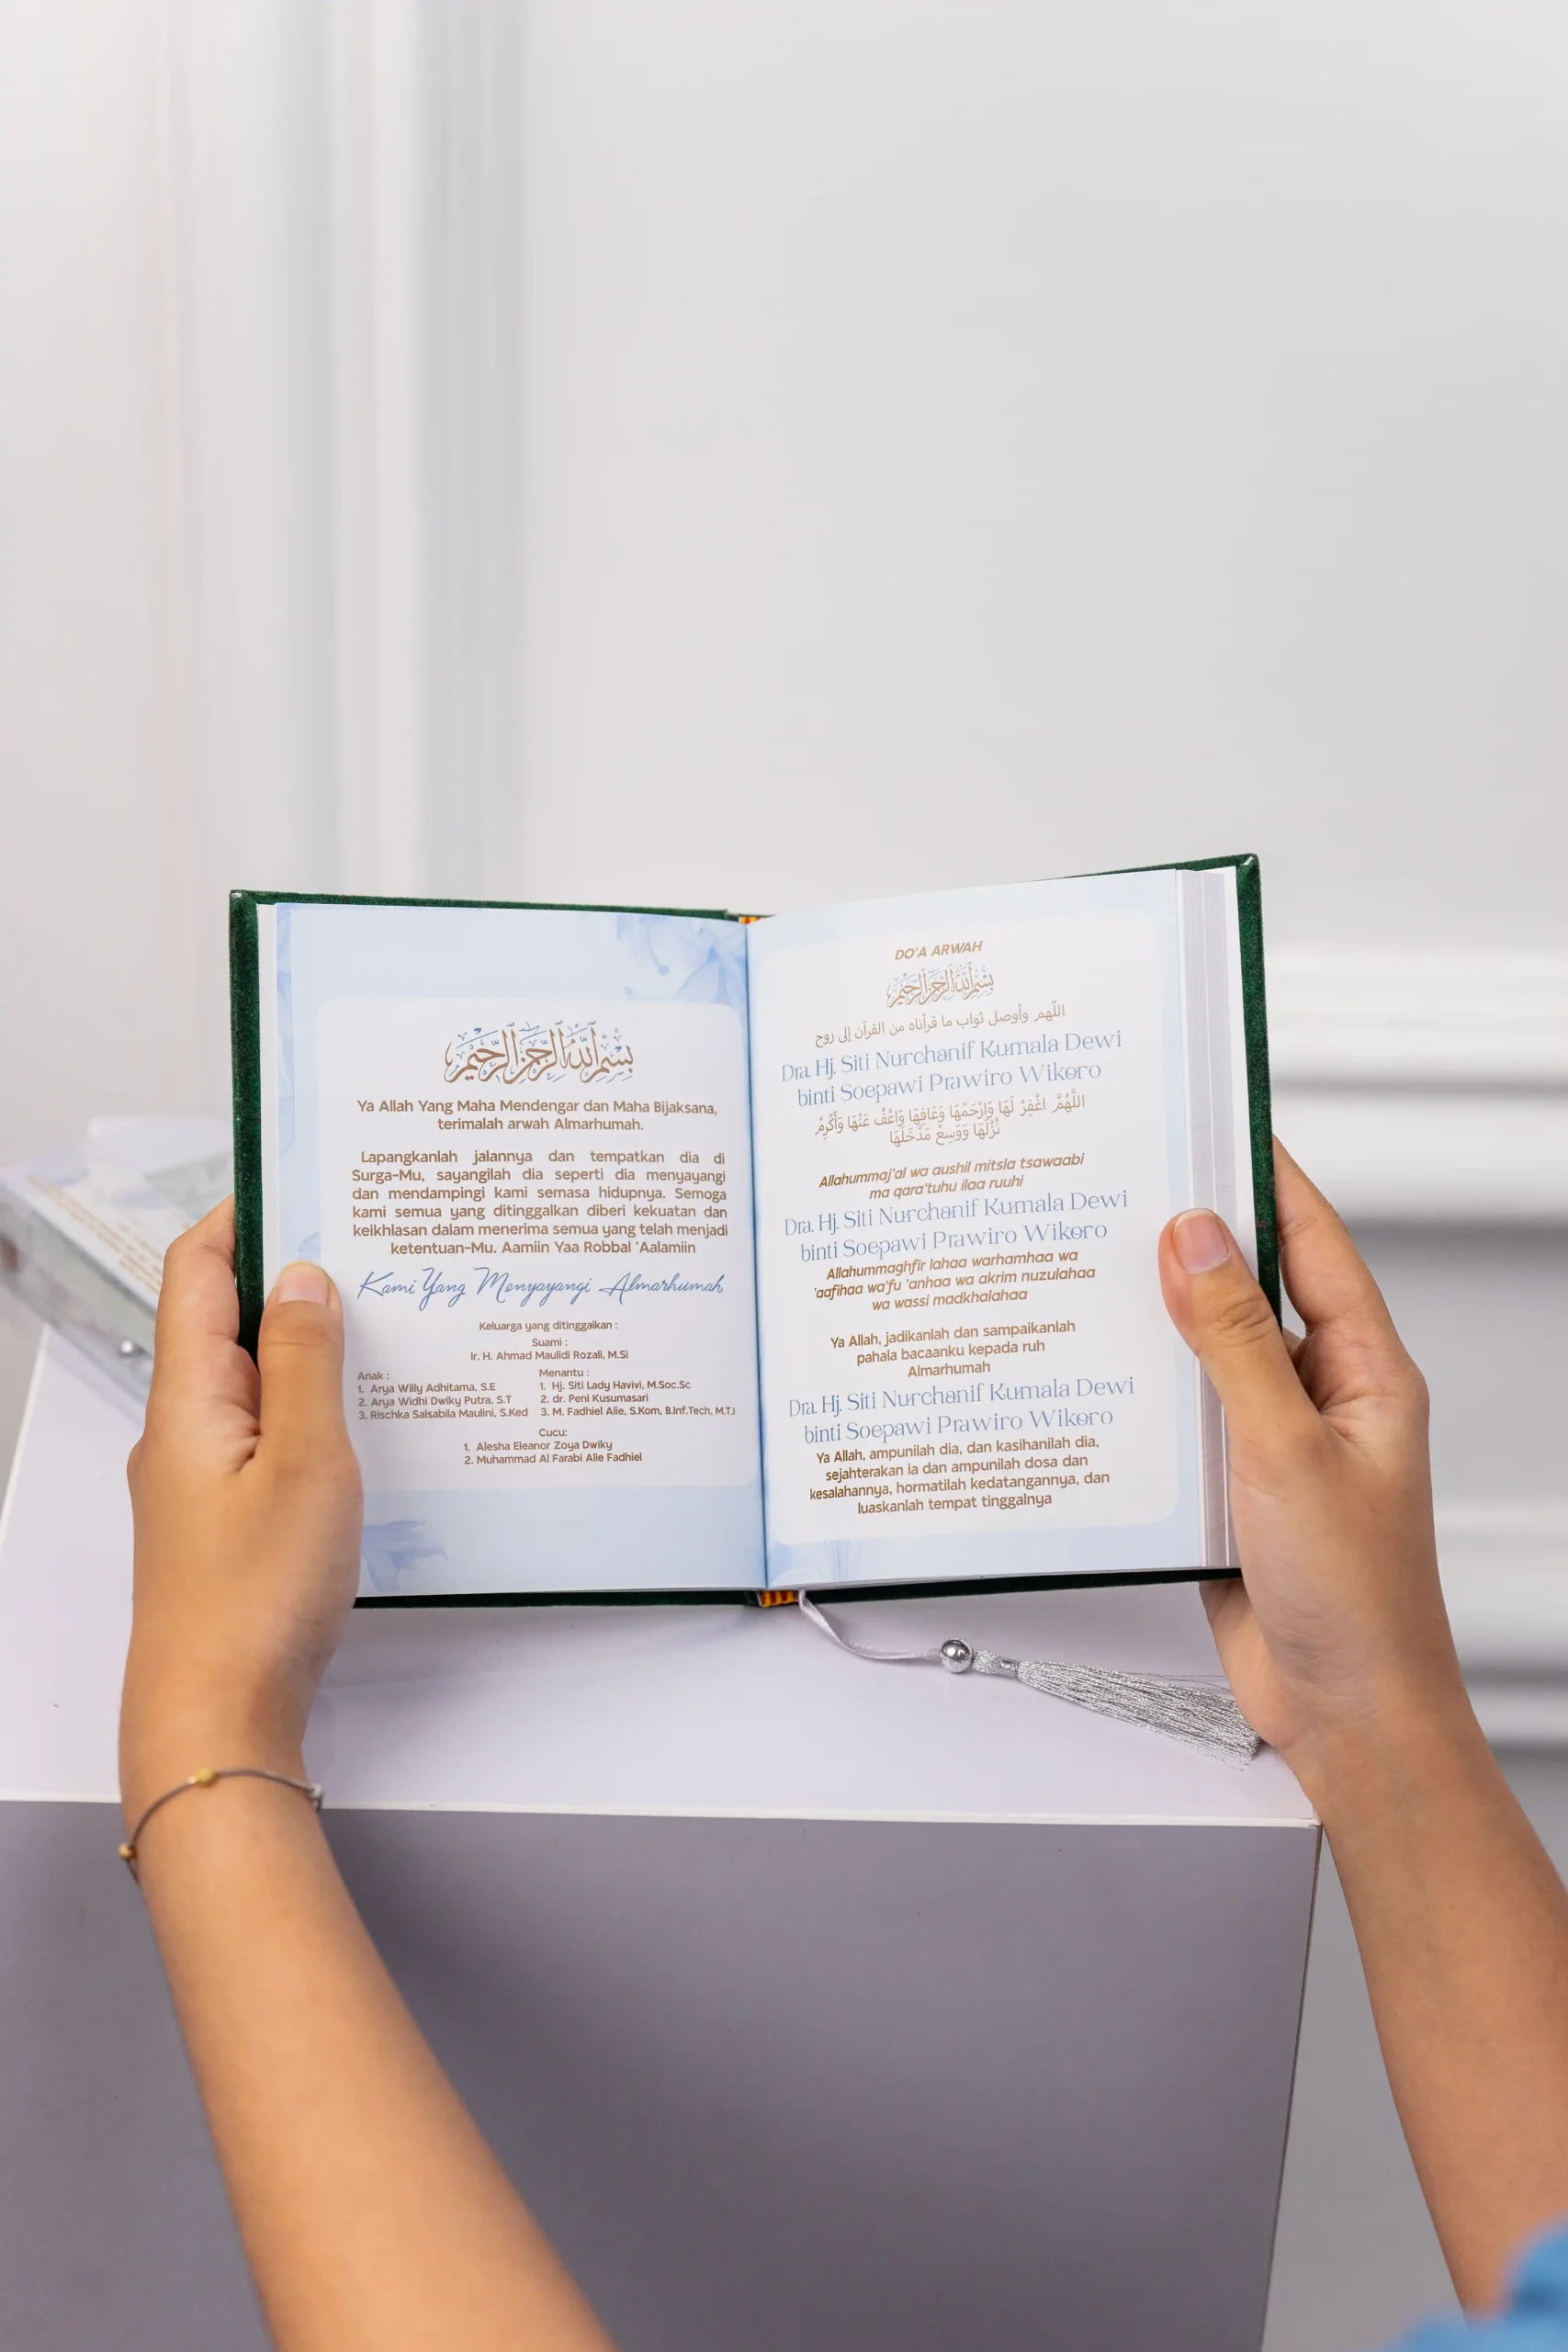 بِسْمِ اللَّهِ الرَّحْمَنِ الرَّحِيمِ
Ya Allah Yang Maha Mendengar dan Maha Bijaksana,
terimalah arwah Almarhumah.
Lapangkanlah jalannya dan tempatkan dia di
Surga-Mu, sayangilah dia seperti dia menyayangi
dan mendampingi kami semasa hidupnya. Semoga
kami semua yang ditinggalkan diberi kekuatan dan
keikhlasan dalam menerima semua yang telah menjadi
ketentuan-Mu. Aamiin Yaa Robbal 'Aalamiin
Kami Yang Menyayangi Almarhumah
Keluarga yang ditinggalkan :
Suami :
Ir. H. Ahmad Maulidi Rozali, M.Si
Anak :
1. Arya Willy Adhitama, S.E
2. Arya Widhi Dwiky Putra, S.T
3. Rischka Salsabila Maulini, S.Ked
Menantu :
1. Hj. Siti Lady Havivi, M.Soc.Sc
2. dr. Peni Kusumasari
3. M. Fadhiel Alie, S.Kom, B.Inf.Tech, M.T.I
Cucu:
1. Alesha Eleanor Zoya Dwiky
2. Muhammad Al Farabi Alie Fadhiel
DO'A ARWAH
بِسْمِ اللَّهِ الرَّحْمَنِ الرَّحِيمِ
اللّهم وأوصل ثواب ما قرأناه من القرآن إلى روح
Dra. Hj. Siti Nurchanif Kumala Dewi
binti Soepawi Prawiro Wikoro
اللَّهُمَّ اغْفِرْ لَهَا وَارْحَمْهَا وَعَافِهَا وَاعْفُ عَنْهَا وَأَكْرِمْ
نُزُلَهَا وَوَسِعْ مَدْخَلَهَا
Allahummaj'al wa aushil mitsla tsawaabi
ma qara'tuhu ilaa ruuhi
Dra. Hj. Siti Nurchanif Kumala Dewi
binti Soepawi Prawiro Wikoro
Allahummaghfir lahaa warhamhaa wa
'aafihaa wa'fu 'anhaa wa akrim nuzulahaa
wa wassi madkhalahaa
Ya Allah, jadikanlah dan sampaikanlah
pahala bacaanku kepada ruh
Almarhumah
Dra. Hj. Siti Nurchanif Kumala Dewi
binti Soepawi Prawiro Wikoro
Ya Allah, ampunilah dia, dan kasihanilah dia,
sejahterakan ia dan ampunilah dosa dan
kesalahannya, hormatilah kedatangannya, dan
luaskanlah tempat tinggalnya